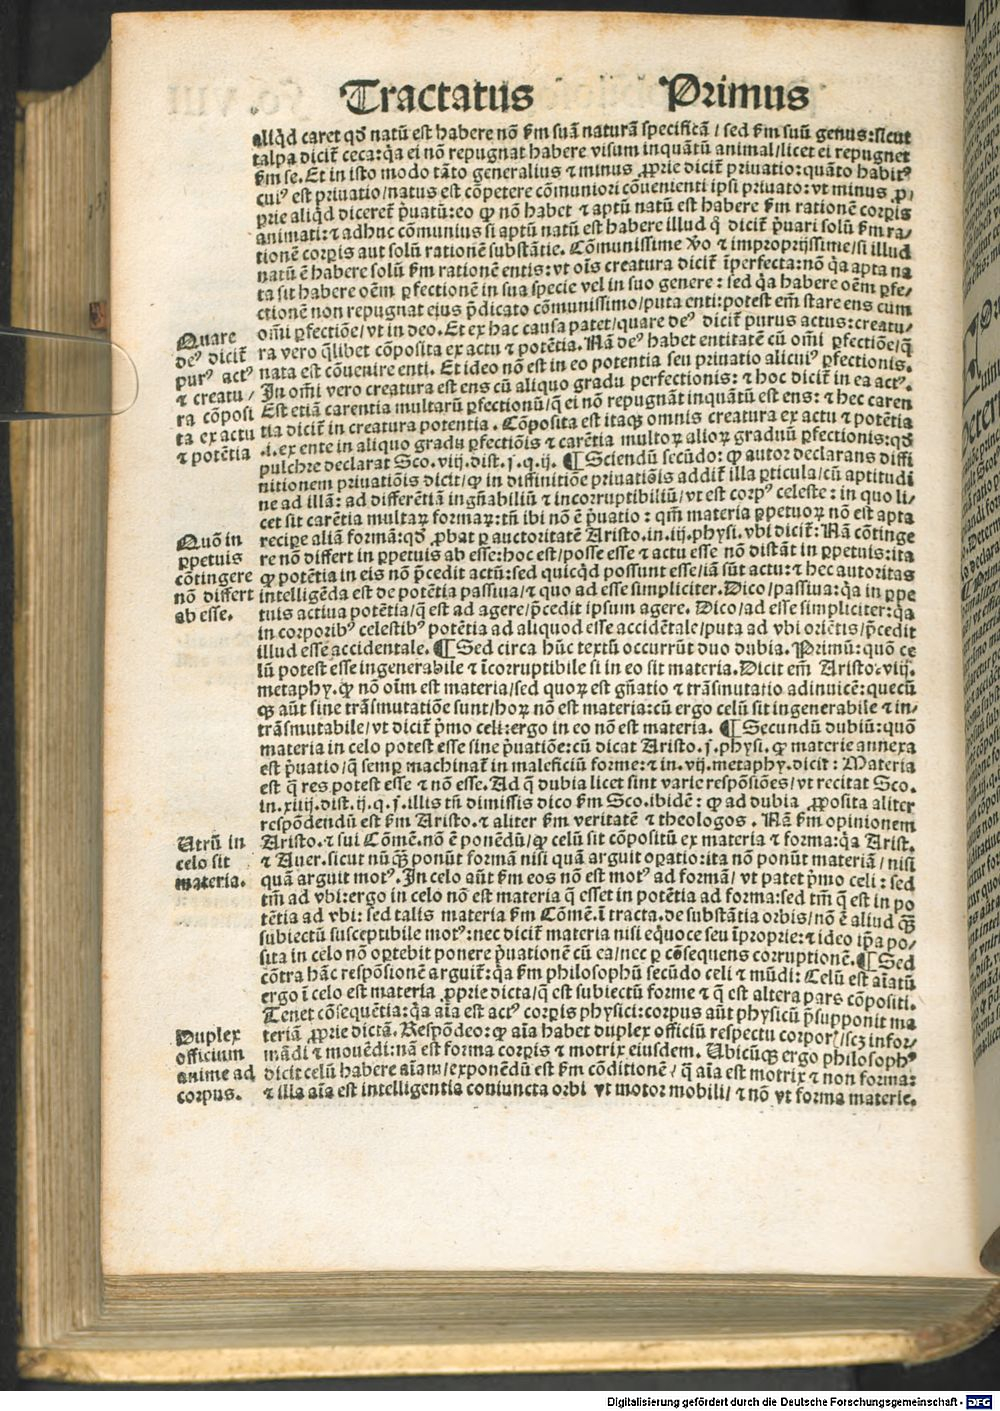 Tractatus Primus
aliq̃d caret qd̕ natũ est habere nõ ẜm suã naturã specificã / sed ẜm suũ genus: sicut
talpa dicit̃ ceca: q̃a ei nõ repugnat habere visum inquãtũ animal / licet ei repugnet
ẜm se. Et in isto modo tãto generalius ⁊ minus ꝓprie dicit̃ priuatio: quãto habitꝰ
cuiꝰ est priuatio / natus est cõpetere cõmuniori cõuenienti ipsi priuato: vt minus ꝓ/
prie aliq̃d diceret̃ p̃uatũ: eo ꝙ nõ habet ⁊ aptũ natũ est habere ẜm rationẽ corꝑis
animati: ⁊ adhuc cõmunius si aptũ natũ est habere illud q̃ dicit̃ p̃uari solũ ẜm ra/
tionẽ corꝑis aut solũ rationẽ substãtie. Cõmunissime v̕o ⁊ impropriſſime / si illud
natũ ẽ habere solũ ẜm rationẽ entis: vt oĩs creatura dicit̃ ĩperfecta: nõ q̃a apta na
ta sit habere oẽm ꝑfectionẽ in sua specie vel in suo genere: sed q̃a habere oẽm ꝑfe/
ctionẽ non repugnat eius p̃dicato cõmunissimo / puta enti: potest em̃ stare ens cum
om̃i ꝑfectiõe / vt in deo. Et ex hac causa patet / quare deꝰ dicit̃ purus actus: creatu/
ra vero q̃libet cõposita ex actu ⁊ potẽtia. Nã deꝰ habet entitatẽ cũ om̃i ꝑfectiõe / q̃
nata est cõuenire enti. Et ideo nõ est in eo potentia seu priuatio alicuiꝰ ꝑfectionis.
In om̃i vero creatura est ens cũ aliquo gradu perfectionis: ⁊ hoc dicit̃ in ea actꝰ.
Est etiã carentia multarũ ꝑfectionũ / q̃ ei nõ repugnãt inquãtũ est ens: ⁊ hec caren
tia dicit̃ in creatura potentia. Cõposita est itaqꝫ omnis creatura ex actu ⁊ potẽtia
.i. ex ente in aliquo gradu ꝑfectiõis ⁊ carẽtia multoꝝ alioꝝ graduũ ꝑfectionis: qd̕
pulchre declarat Sco. viij. dist. j. q. ij. ¶ Sciendũ secũdo: ꝙ autor declarans diffi
nitionem priuatiõis dicit / ꝙ in diffinitiõe priuatiõis addit̃ illa ꝑticula / cũ aptitudi
ne ad illã: ad differẽtiã ingñabiliũ ⁊ incorruptibiliũ / vt est corpꝰ celeste: in quo li/
cet sit carẽtia multaꝝ formaꝝ: tñ ibi nõ ẽ p̃uatio: qm̃ materia ꝑpetuoꝝ nõ est apta
recipe aliã formã: qd̕ ꝓbat ꝑ auctoritatẽ Aristo. in. iij. physi. vbi dicit̃: Nã cõtinge
re nõ differt in ꝑpetuis ab esse: hoc est / posse esse ⁊ actu esse nõ distãt in ꝑpetuis: ita
ꝙ potẽtia in eis nõ p̃cedit actũ: sed quicq̃d possunt esse / iã sũt actu: ⁊ hec autoritas
intelligẽda est de potẽtia passiua / ⁊ quo ad esse simpliciter. Dico / passiua: q̃a in ꝑpe
tuis actiua potẽtia / q̃ est ad agere / p̃cedit ipsum agere. Dico / ad esse simpliciter: q̃a
in corporibꝰ celestibꝰ potẽtia ad aliquod esse accidẽtale / puta ad vbi oriẽtis / p̃cedit
illud esse accidentale. ¶ Sed circa hũc textũ occurrũt duo dubia. Primũ: quõ ce
lũ potest esse ingenerabile ⁊ ĩcorruptibile si in eo sit materia. Dicit em̃ Aristo. viij.
metaphy. ꝙ nõ oĩm est materia / sed quoꝝ est gñatio ⁊ trãsmutatio adinuicẽ: quecũ
qꝫ aũt sine trãsmutatiõe sunt / hoꝝ nõ est materia: cũ ergo celũ sit ingenerabile ⁊ in/
trãsmutabile / vt dicit̃ p̃mo celi: ergo in eo nõ est materia. ¶ Secundũ dubiũ: quõ
materia in celo potest esse sine p̃uatiõe: cũ dicat Aristo. j. physi. ꝙ materie annexa
est p̃uatio / q̃ semꝑ machinat̃ in maleficiũ forme: ⁊ in. vij. metaphy. dicit: Materia
est q̃ res potest esse ⁊ nõ esse. Ad q̃ dubia licet sint varie respõsiões / vt recitat Sco.
in. xiiij. dist. ij. q. j. illis tñ dimissis dico ẜm Sco. ibidẽ: ꝙ ad dubia ꝓposita aliter
respõdendũ est ẜm Aristo. ⁊ aliter ẜm veritatẽ ⁊ theologos. Nã ẜm opinionem
Aristo. ⁊ sui Cõmẽ. nõ ẽ ponẽdũ / ꝙ celũ sit cõpositũ ex materia ⁊ forma: q̃a Arist.
⁊ Auer. sicut nũq̃ꝫ ponũt formã nisi quã arguit oꝑatio: ita nõ ponũt materiã / nisi
quã arguit motꝰ. In celo aũt ẜm eos nõ est motꝰ ad formã / vt patet p̃mo celi: sed
tm̃ ad vbi: ergo in celo nõ est materia q̃ esset in potẽtia ad forma: sed tm̃ q̃ est in po
tẽtia ad vbi: sed talis materia ẜm Cõmẽ. ĩ tracta. de substãtia orbis / nõ ẽ aliud q̃ꝫ
subiectũ susceptibile motꝰ: nec dicit̃ materia nisi eq̃uoce seu ĩproprie: ⁊ ideo ip̃a po/
sita in celo nõ oꝑtebit ponere p̃uationẽ cũ ea / nec ꝑ cõsequens corruptionẽ. ¶ Sed
cõtra hãc respõsionẽ arguit̃: q̃a ẜm philosophũ secũdo celi ⁊ mũdi: Celũ est aĩatũ
ergo ĩ celo est materia ꝓprie dicta / q̃ est subiectũ forme ⁊ q̃ est altera pars cõpositi.
Tenet cõsequẽtia: q̃a aĩa est actꝰ corꝑis physici: corpus aũt physicũ p̃supponit ma
teriã ꝓprie dictã. Respõdeo: ꝙ aĩa habet duplex officiũ respectu corporꝭ / scꝫ infor/
mãdi ⁊ mouẽdi: nã est forma corꝑis ⁊ motrix eiusdem. Ubicũqꝫ ergo philosophꝰ
dicit celũ habere aĩam / exponẽdũ est ẜm cõditionẽ / q̃ aĩa est motrix ⁊ non forma:
⁊ illa aĩa est intelligentia coniuncta orbi vt motor mobili / ⁊ nõ vt forma materie.
Quare
deꝰ dicit̃
purꝰ actꝰ
⁊ creatu /
ra cõposi
ta ex actu
⁊ potẽtia
Quõ in
ꝑpetuis
cõtingere
nõ differt
ab esse.
Utrũ in
celo sit
materia.
Duplex
officium
anime ad
corpus.
Digitalisierung gefördert durch die Deutsche Forschungsgemeinschaft - DFG